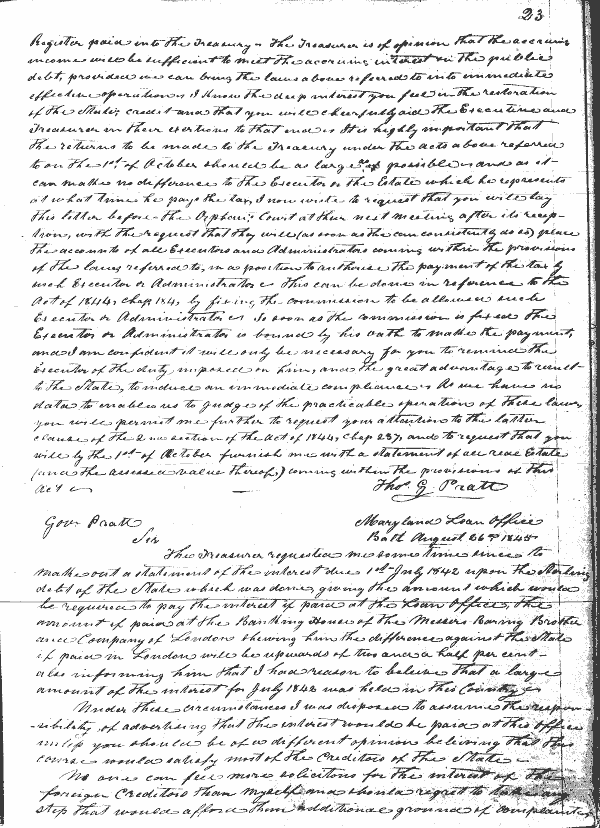 23
Register paid into the Treasury. The Treasurer is of opinion that the accruing
income will be sufficient to meet the accruing interest on the public
debt, provided we can bring the laws above referred to into immediate
effective operation. I know the deep interest you feel in the restoration
of the State's credit and that you will cheerfully aid the Executive and
Treasurer in their exertions to that end. It is highly important that
the returns to be made to the Treasury under the acts above referred
to on the 1st of October should be as large as possible and as it
can make no difference to the Executor or the Estate which he represents
at what time he pays the tax, I now write to request that you will lay
this letter before the Orphans Court at their next meeting after its recep-
tion, with the request that they will (as soon as the can consistently do so) place
the accounts of all Executors and Administrators coming within the provisions
of the laws referred to, in a position to authorise the payment of the tax by
such Executor or Administrator. This can be done in reference to the
Act of 1844, chap 184, by fixing the commission to be allowed such
Executor or Administrator. So soon as the commission is fixed the
Executor or Administrator is bound by his oath to make the payment,
and I am confident it will only be necessary for you to remind the
Executor of the duty imposed on him, and the great advantage to result
to the State, to induce an immediate compliance. As we have no
data to enable us to judge of the practicable operation of these laws
you will permit me further to request your attention to the latter
clause of the 2nd section of the Act of 1844, chap 237, and to request that you
will by the 1st of October furnish me with a statement of all real Estate
(and the assessed value thereof,) coming within the provisions of this
Act
Tho. G Pratt
Gov. Pratt
Maryland Loan Office
Sir
Balt August 26th 1845
The Treasurer requested me some time since to
make out a statement of the interest due 1st July 1842 upon the Sterling
debt of the State which was done, giving the amount which would
be required to pay the interest if paid at the Loan Office, the
amount if paid at the Banking House of the Messers Baring Brother
and Company of London shewing him the difference against the State
if paid in London will be upwards of two and a half per cent-
also informing him that I had reason to believe that a large
amount of the interest for July 1842 was held in this Country
Under these circumstances I was disposed to assume the respon-
-sibility of advertising that the interest would be paid at this Office
unless you should be of a different opinion believing that this
course would satisfy most of the Creditors of the State
No one can feel more solicitous for the interest of the
foreign Creditors than myself and should regret to take any
step that would afford them additional ground of complaint